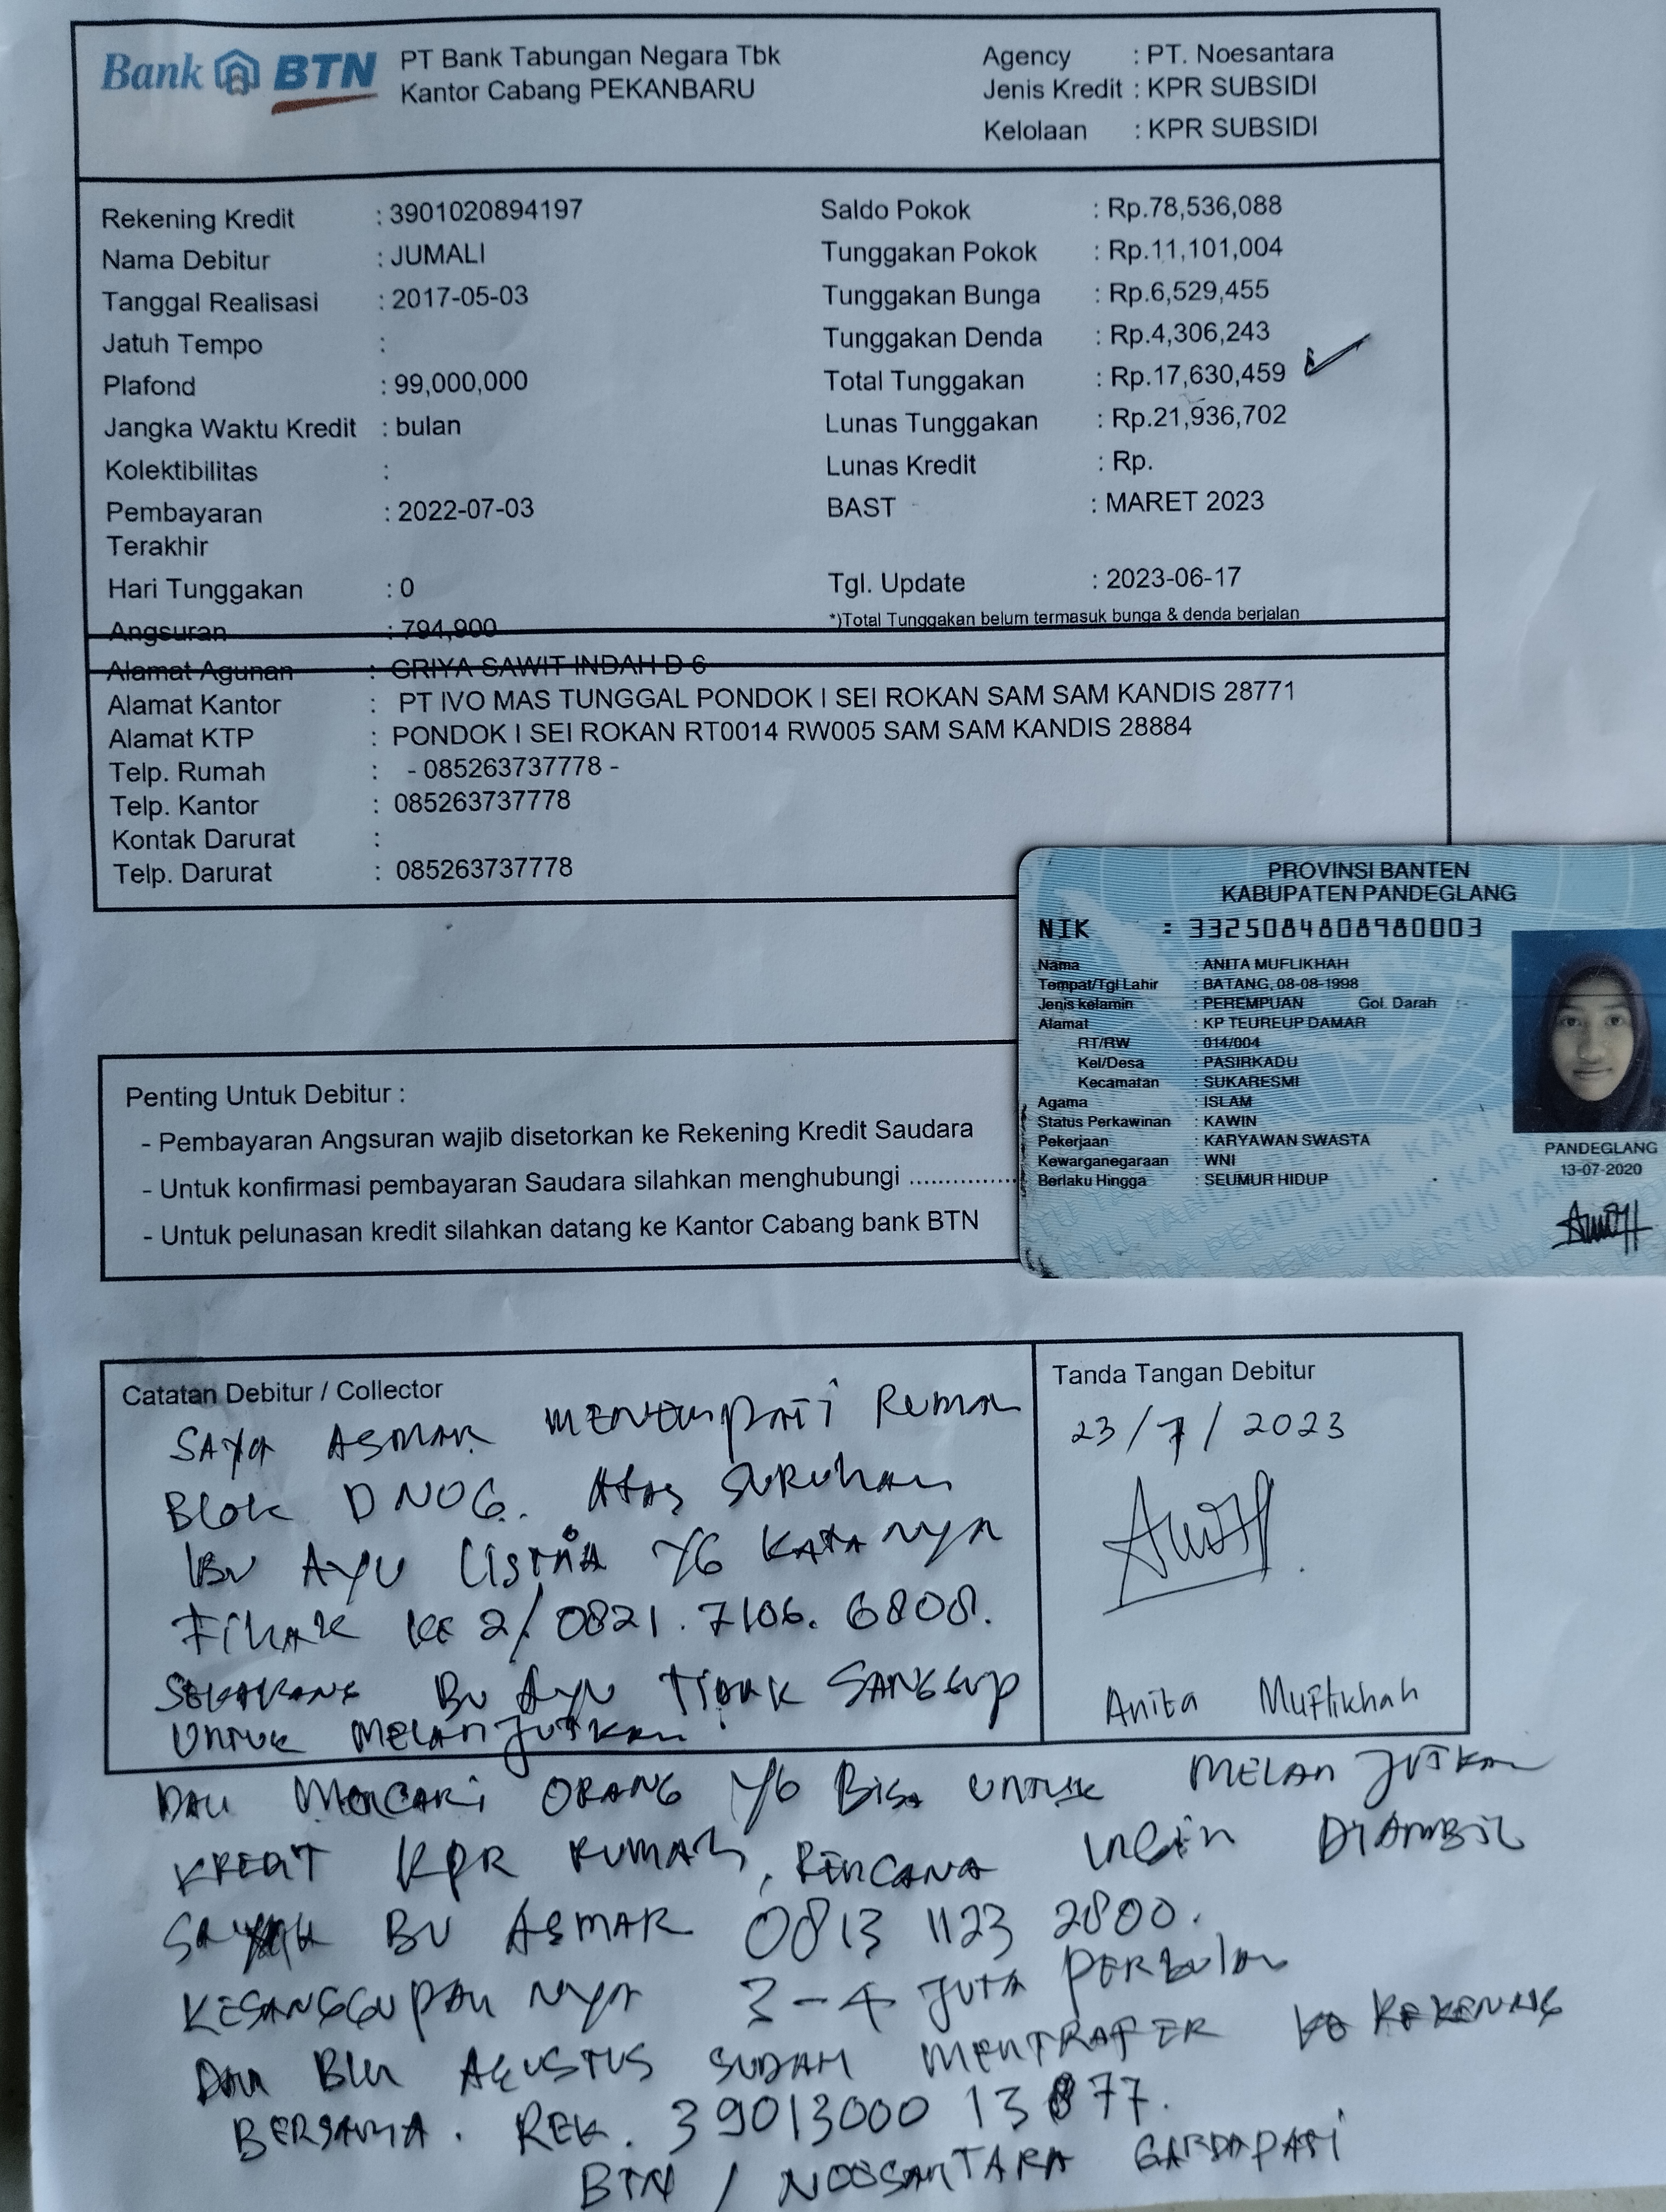 Bank BTN
PT Bank Tabungan Negara Tbk
Kantor Cabang PEKANBARU
Agency : PT. Noesantara
Jenis Kredit : KPR SUBSIDI
Kelolaan : KPR SUBSIDI
Rekening Kredit : 3901020894197
Nama Debitur : JUMALI
Tanggal Realisasi : 2017-05-03
Jatuh Tempo :
Plafond : 99,000,000
Jangka Waktu Kredit : bulan
Kolektibilitas :
Pembayaran : 2022-07-03
Terakhir
Hari Tunggakan : 0
Angsuran : 794,900
Saldo Pokok : Rp.78,536,088
Tunggakan Pokok : Rp.11,101,004
Tunggakan Bunga : Rp.6,529,455
Tunggakan Denda : Rp.4,306,243
Total Tunggakan : Rp.17,630,459
Lunas Tunggakan : Rp.21,936,702
Lunas Kredit : Rp.
BAST : MARET 2023
Tgl. Update : 2023-06-17
*)Total Tunggakan belum termasuk bunga & denda berjalan
Alamat Agunan : GRIYA SAWIT INDAH D 6
Alamat Kantor : PT IVO MAS TUNGGAL PONDOK I SEI ROKAN SAM SAM KANDIS 28771
Alamat KTP : PONDOK I SEI ROKAN RT0014 RW005 SAM SAM KANDIS 28884
Telp. Rumah : - 085263737778 -
Telp. Kantor : 085263737778
Kontak Darurat :
Telp. Darurat : 085263737778
PROVINSI BANTEN
KABUPATEN PANDEGLANG
NIK : 3325084808980003
Nama : ANITA MUFLIKHAH
Tempat/Tgl Lahir : BATANG, 08-08-1998
Jenis kelamin : PEREMPUAN Gol. Darah : -
Alamat : KP TEUREUP DAMAR
RT/RW : 014/004
Kel/Desa : PASIRKADU
Kecamatan : SUKARESMI
Agama : ISLAM
Status Perkawinan : KAWIN
Pekerjaan : KARYAWAN SWASTA
Kewarganegaraan : WNI
Berlaku Hingga : SEUMUR HIDUP
PANDEGLANG
13-07-2020
Penting Untuk Debitur :
- Pembayaran Angsuran wajib disetorkan ke Rekening Kredit Saudara
- Untuk konfirmasi pembayaran Saudara silahkan menghubungi ...............
- Untuk pelunasan kredit silahkan datang ke Kantor Cabang bank BTN
Catatan Debitur / Collector
SAYA ASMAR MENEMPATI RUMAH
BLOK D NO 6. ATAS SURUHAN
IBU AYU LISTRIA YG KATANYA
FIHAK KE 2/ 0821.7106.6808.
SEKARANG BU AYU TIDAK SANGGUP
UNTUK MELANJUTKAN
DAN MENCARI ORANG YG BISA UNTUK MELANJUTKAN
KREDIT KPR RUMAH, RENCANA INGIN DIAMBIL
BU ASMAR 0813 1123 2800.
KESANGGUPAN NYA 3-4 JUTA PERBULAN
DAN BLN AGUSTUS SUDAH MENTRAFER KE REKENING
BERSAMA. REK. 39013000 13877.
BTN / NOOSANTARA GARDAPATI
Tanda Tangan Debitur
23/7/2023
Anita Muflikhah